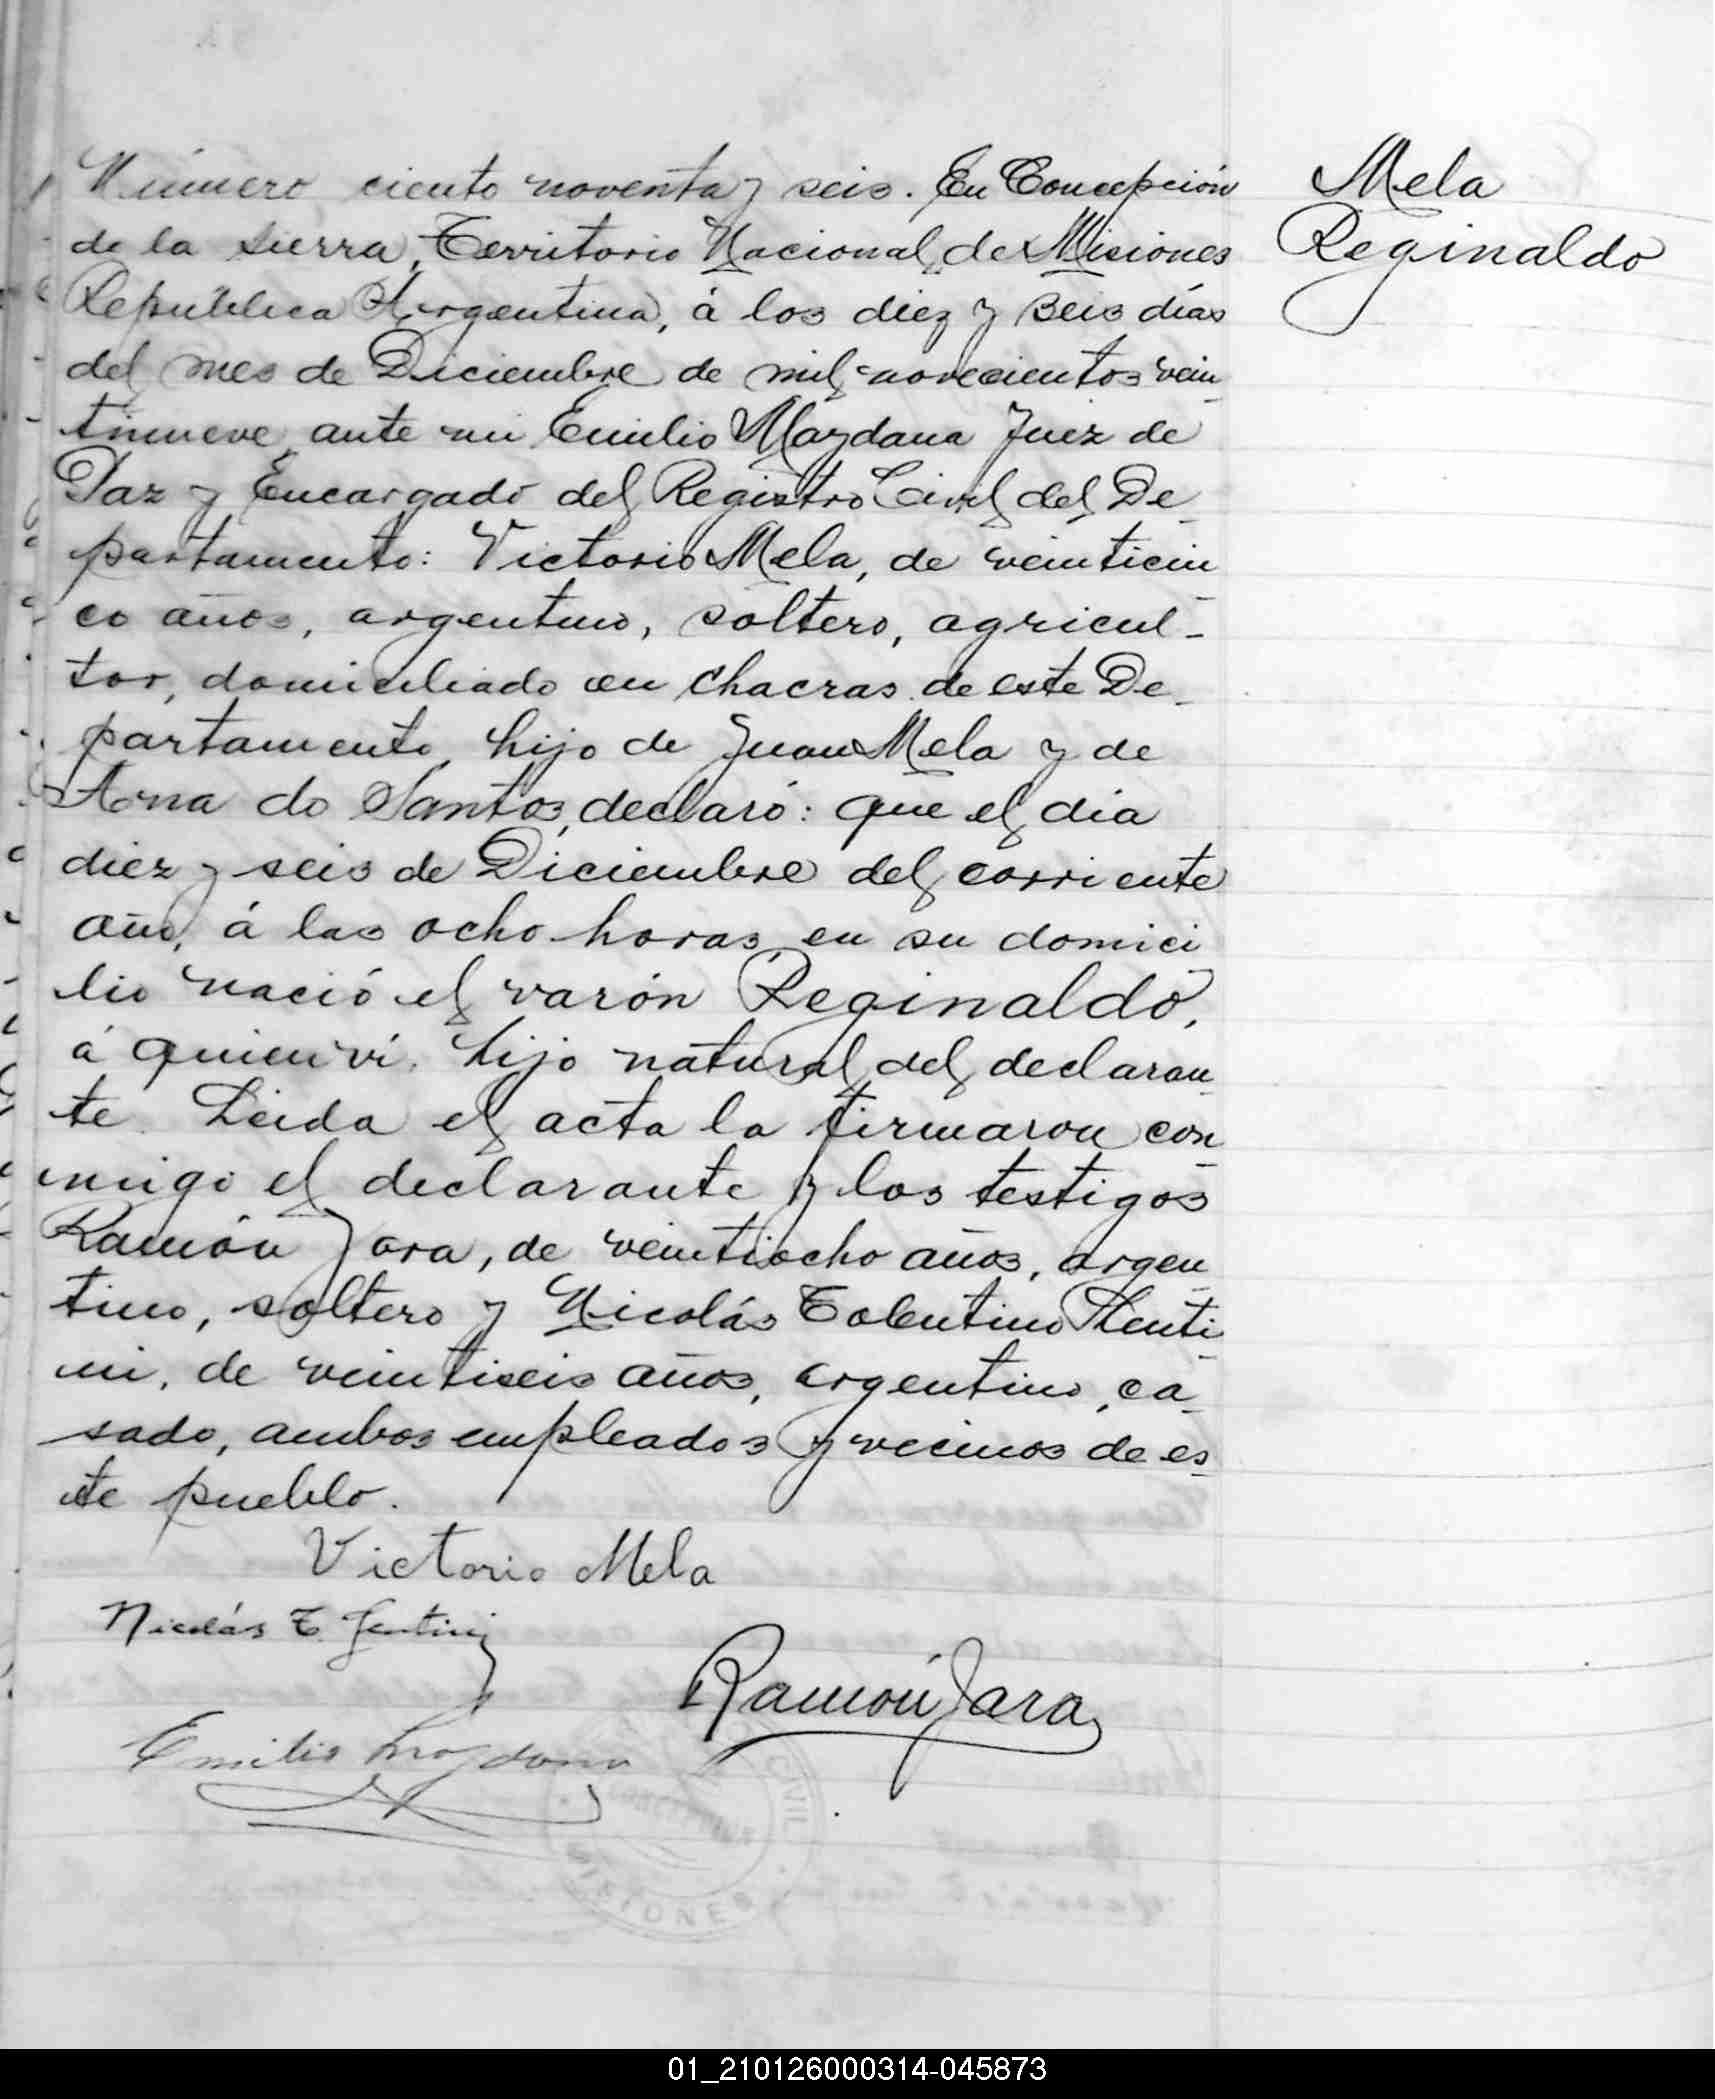 Mela
Reginaldo
Número ciento noventa y seis. En Concepción
de la Sierra, Territorio Nacional de Misiones
República Argentina, á los diez y seis días
del mes de Diciembre de mil novecientos vein
tinueve ante mi Emilio Maydana Juez de
Paz y Encargado del Registro Civil del De
partamento: Victorio Mela, de veinticin
co años, argentino, soltero, agricul-
tor, domiciliado en chacras de este De
partamento, hijo de Juan Mela y de
Ana do Santos, declaró: que el día
diez y seis de Diciembre del corriente
año, á las ocho horas, en su domici
lio nació el varón Reginaldo,
á quien ví, hijo natural del declaran
te. Leida el acta la firmaron con
migo el declarante y los testigos
Ramón Jara, de veintiocho años, argen
tino, soltero y Nicolás Tolentino
de veintiseis años, argentino, ca
sado, ambos empleados y vecinos de es
te pueblo.
Victorio Mela
Nicolás T.
Ramón Jara
Emilio Maydana
CIVIL
MISIONES
01_210126000314-045873